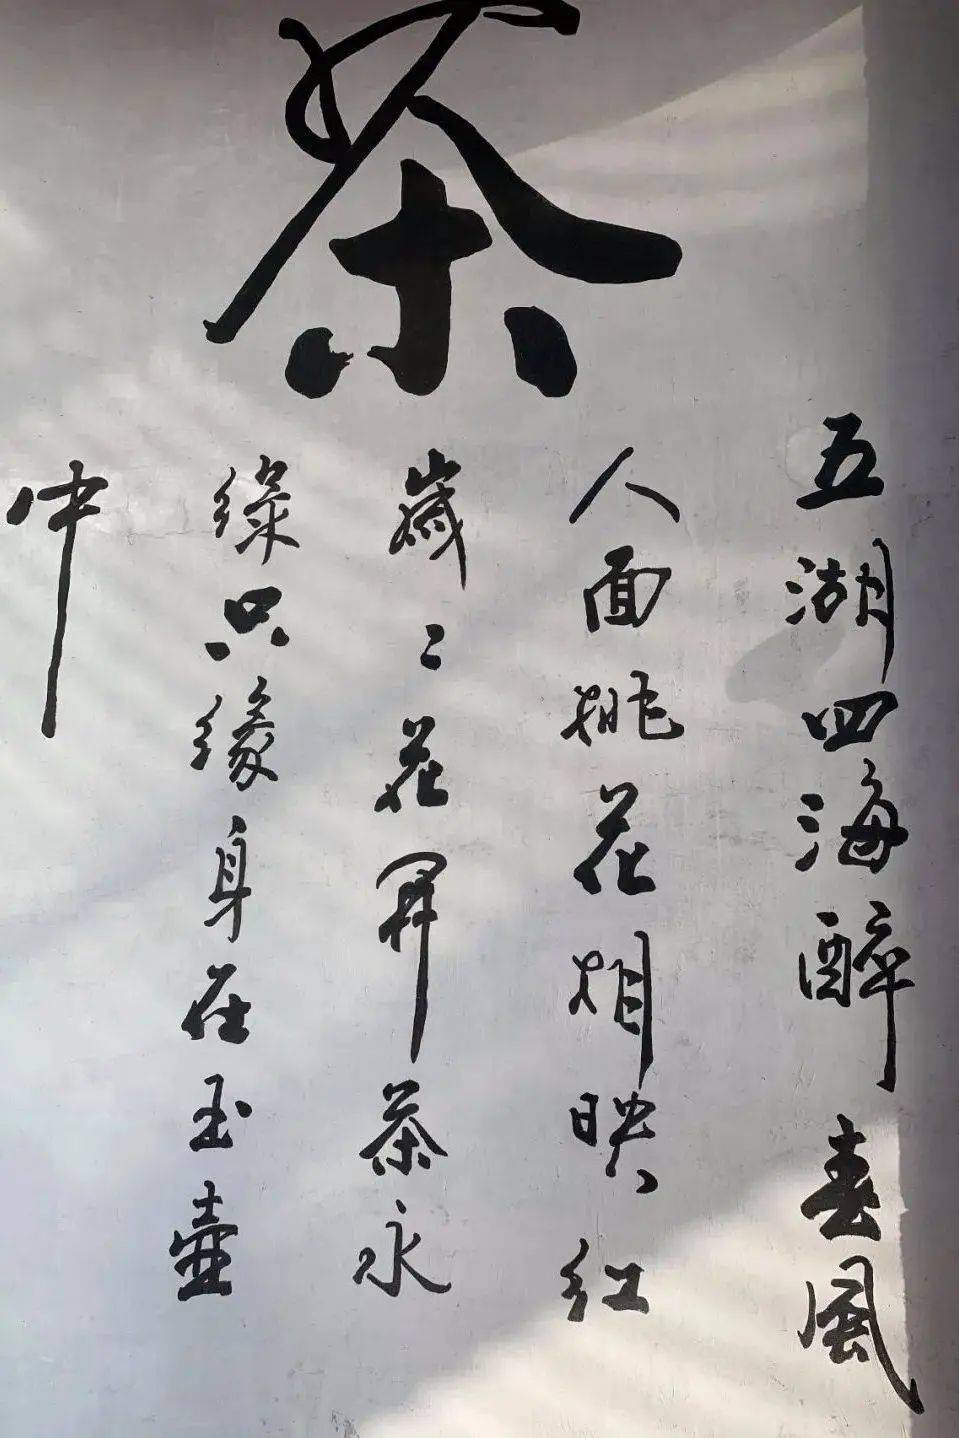 茶
五湖四海醉春風
人面桃花相映红
歲々花開茶永
綠只缘身在玉壺
中